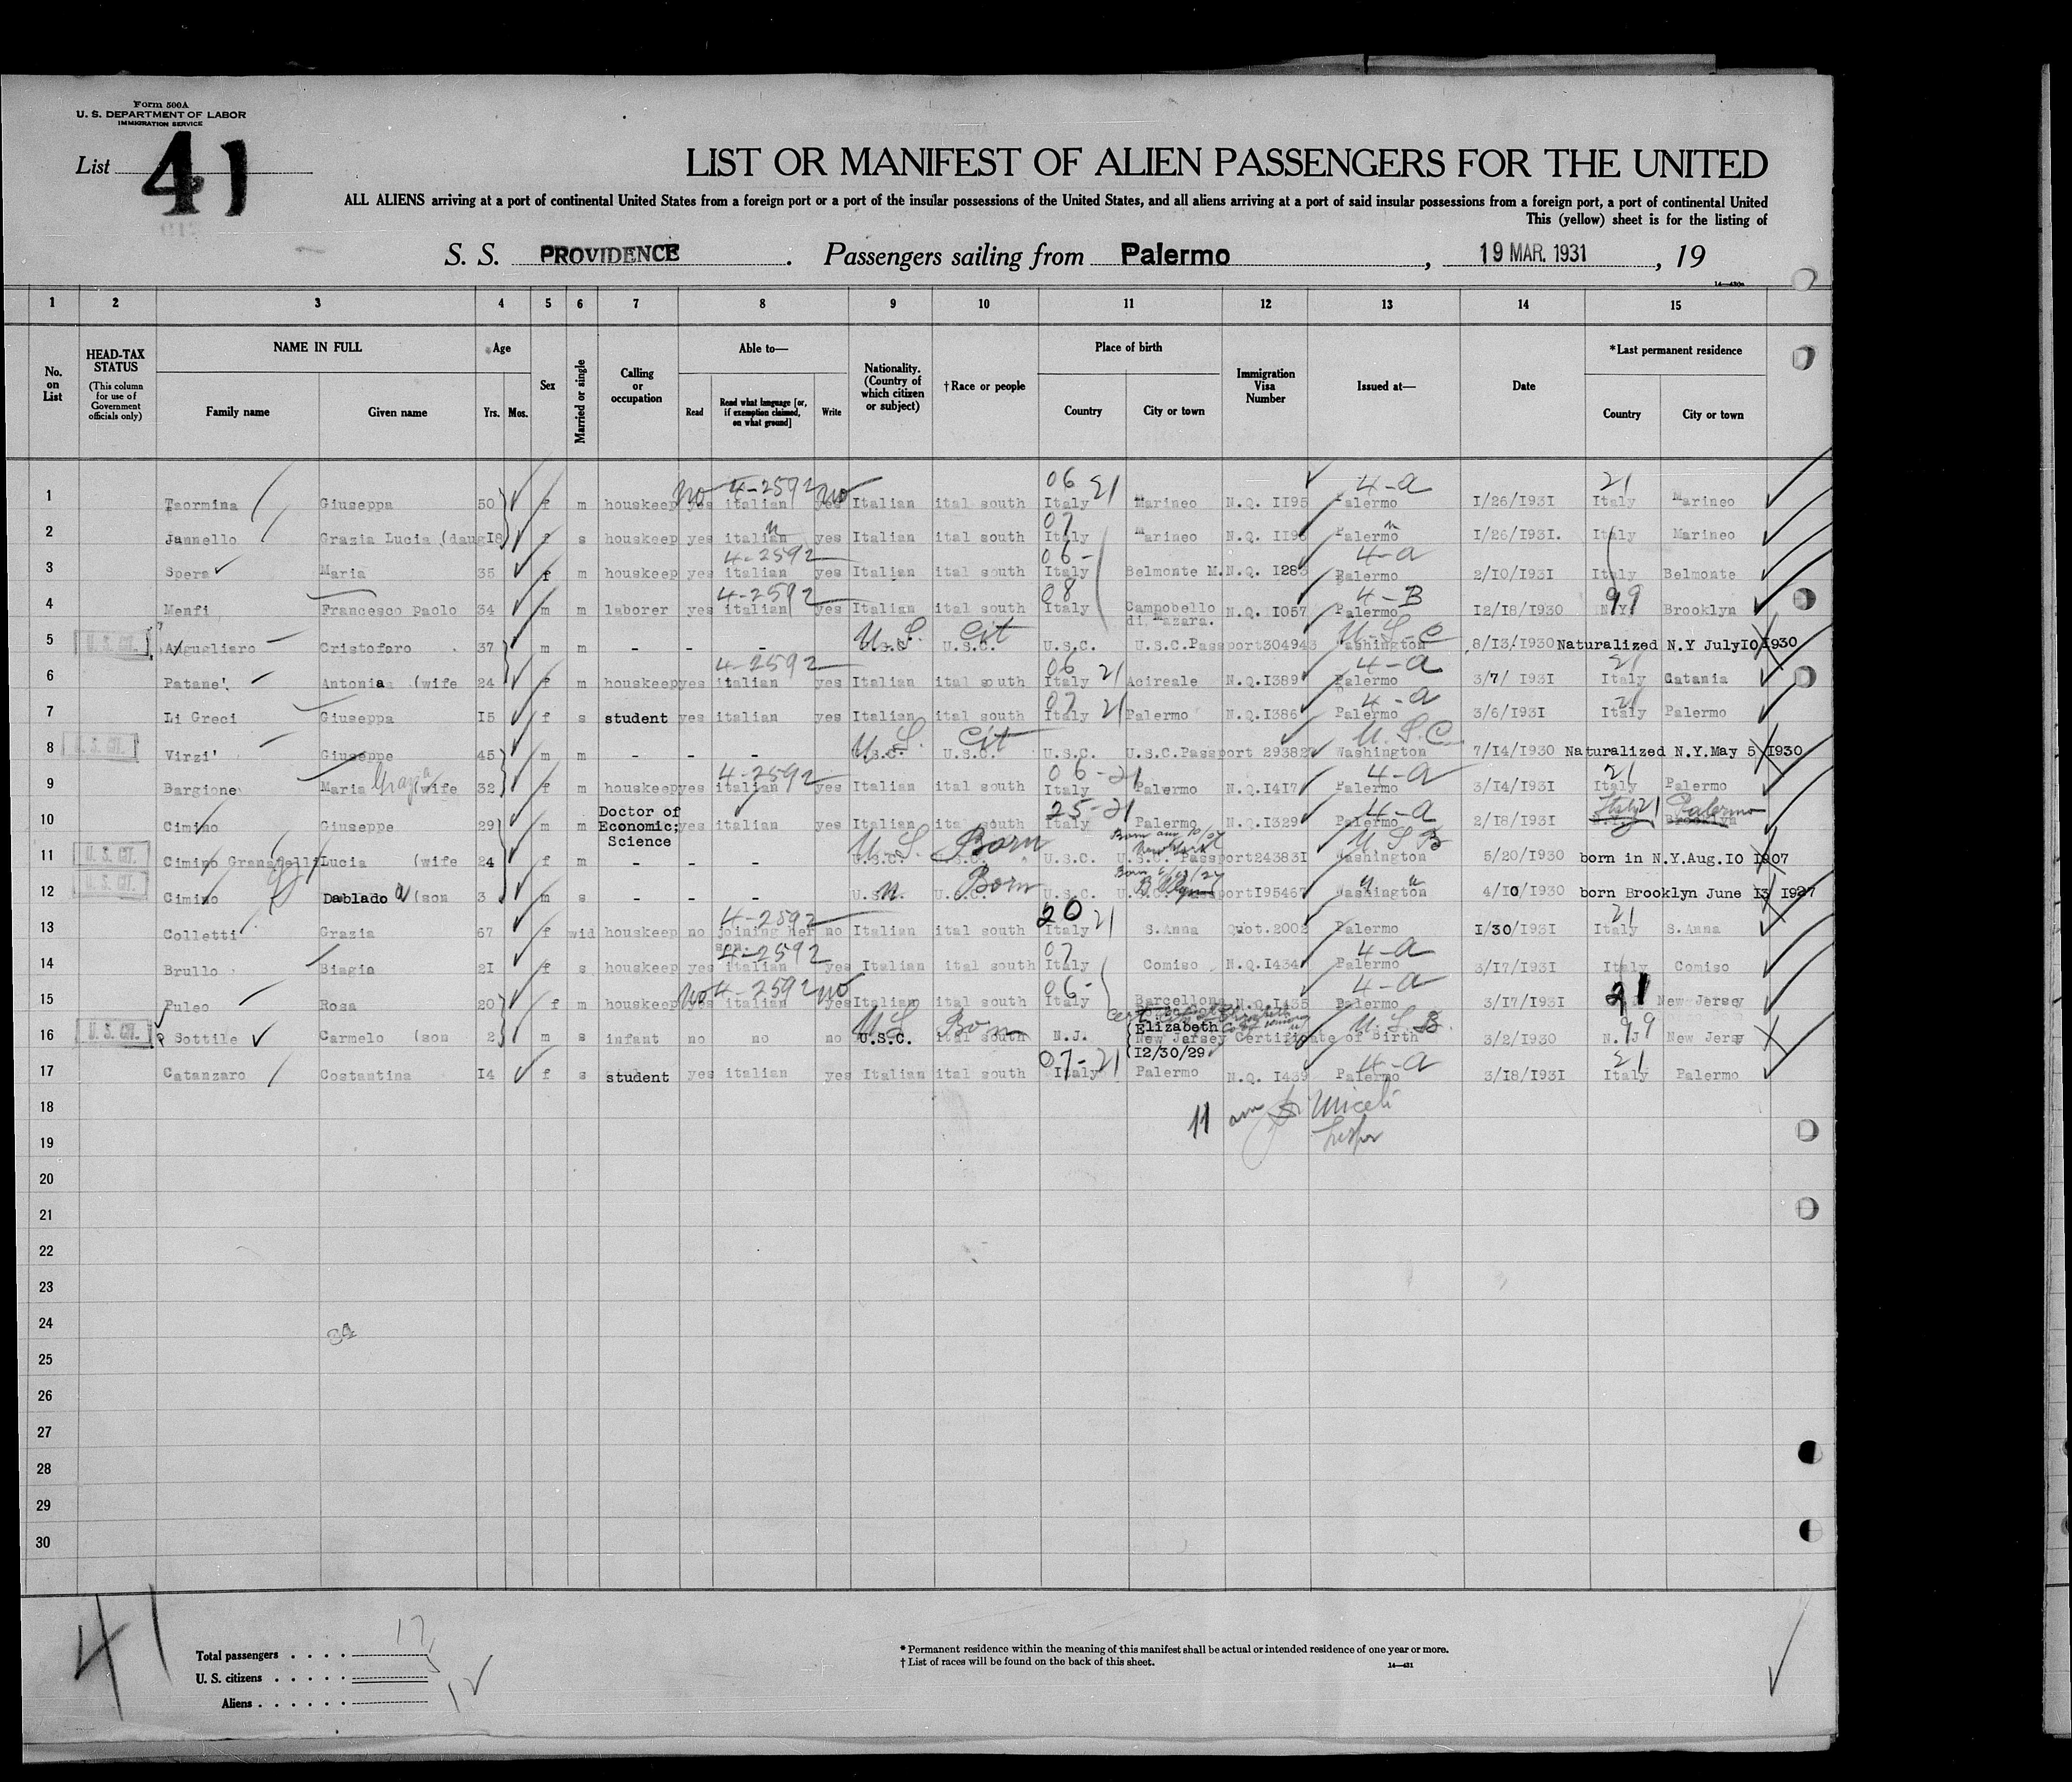 Form 500A
U. S. DEPARTMENT OF LABOR
IMMIGRATION SERVICE
List 41
LIST OR MANIFEST OF ALIEN PASSENGERS FOR THE UNITED
ALL ALIENS arriving at a port of continental United States from a foreign port or a port of the insular possessions of the United States, and all aliens arriving at a port of said insular possessions from a foreign port, a port of continental United
This (yellow) sheet is for the listing of
S. S. PROVIDENCE. Passengers sailing from Palermo, 19 MAR. 1931, 19
1 2 3 4 5 6 7 8 9 10 11 12 13 14 15
No. on List
HEAD-TAX STATUS (This column for use of Government officials only)
NAME IN FULL Family name Given name
Age Yrs. Mos.
Sex
Married or single
Calling or occupation
Able to— Read Read what language [or, if exemption claimed, on what ground] Write
Nationality. (Country of which citizen or subject)
†Race or people
Place of birth Country City or town
Immigration Visa Number
Issued at—
Date
*Last permanent residence Country City or town
1 Taormina Giuseppa 50 f m houskeep no yes 4-2592 italian no yes Italian ital south 06 21 Italy Marineo N.Q. 1195 4-a Palermo 1/26/1931 21 Italy Marineo
2 Jannello Grazia Lucia (daug 18 f s houskeep yes italian yes Italian ital south 07 Italy Marineo N.Q. 1196 Palermo 1/26/1931. Italy Marineo
3 Spera Maria 35 f m houskeep yes 4-2592 italian yes Italian ital south 06- Italy Belmonte M. N.Q. 1283 4-a Palermo 2/10/1931 Italy Belmonte
4 Menfi Francesco Paolo 34 m m laborer yes 4-2592 italian yes Italian ital south 08 Italy Campobello di Mazara. N.Q. 1057 4-B Palermo 12/18/1930 99 N.Y. Brooklyn
5 U. S. CIT. Angugliaro Cristoforo 37 m m - - - U.S. U.S.C. Cit U.S.C. U.S.C. U.S.C.Passport304943 U-S-C Washington 8/13/1930 Naturalized N.Y July10 1930
6 Patane' Antonia (wife 24 f m houskeep yes 4-2592 italian yes Italian ital south 06 21 Italy Acireale N.Q.1389 4-a Palermo 3/7/ 1931 21 Italy Catania
7 Li Greci Giuseppa 15 f s student yes italian yes Italian ital south 07 21 Italy Palermo N.Q.1386 4-a Palermo 3/6/1931 21 Italy Palermo
8 U. S. CIT. Virzi' Giuseppe 45 m m - - - U.S. U.S.C. Cit U.S.C. U.S.C. U.S.C.Passport 29382 U.S.C. Washington 7/14/1930 Naturalized N.Y.May 5 1930
9 Bargione Maria Grazia (wife 32 f m houskeep yes 4-2592 italian yes Italian ital south 06-21 Italy Palermo N.Q.1417 4-a Palermo 3/14/1931 21 Italy Palermo
10 Cimino Giuseppe 29 m m Doctor of Economic; Science yes italian yes Italian ital south 25-21 Italy Palermo N.Q.1329 4-a Palermo 2/18/1931 Italy 21 Palermo N.Y. Brooklyn
11 U. S. CIT. Cimino Granatelli Lucia (wife 24 f m - - - U.S. U.S.C. Born U.S.C. Born aug 10/07 New York U.S.C. Passport243831 U S B Washington 5/20/1930 born in N.Y.Aug.10 1907
12 U. S. CIT. Cimino Dablado (son 3 m s - - - U.S.C. Born U.S.C. U.S.C. Born 6/13/27 B'klyn Passport195467 " " Washington 4/10/1930 born Brooklyn June 13 1927
13 Colletti Grazia 67 f wid houskeep no 4-2592 joining her son no Italian ital south 20 21 Italy S.Anna Quot.2002 Palermo 1/30/1931 21 Italy S.Anna
14 Brullo Biagia 21 f s houskeep yes 4-2592 italian yes Italian ital south 07 Italy Comiso N.Q.1434 4-a Palermo 3/17/1931 Italy Comiso
15 Puleo Rosa 20 f m houskeep no yes 4-2592 italian no yes Italian ital south 06- Italy Barcellona N.Q.1435 4-a Palermo 3/17/1931 21 New Jersey
16 U. S. CIT. Sottile Carmelo (son 2 m s infant no no no U.S. U.S.C. Born ital south N.J. (Elizabeth New Jersey Certificate of Birth (12/30/29 U.S.B. 3/2/1930 99 N.J New Jersy
17 Catanzaro Costantina 14 f s student yes italian yes Italian ital south 07-21 Italy Palermo N.Q. 1439 4-a Palermo 3/18/1931 21 Italy Palermo
18 11 am Miceli
19
20
21
22
23
24
25
26
27
28
29
30
41
Total passengers . . . . 17
U. S. citizens . . . . . 5
Aliens . . . . . . 12
* Permanent residence within the meaning of this manifest shall be actual or intended residence of one year or more.
† List of races will be found on the back of this sheet.
14—431